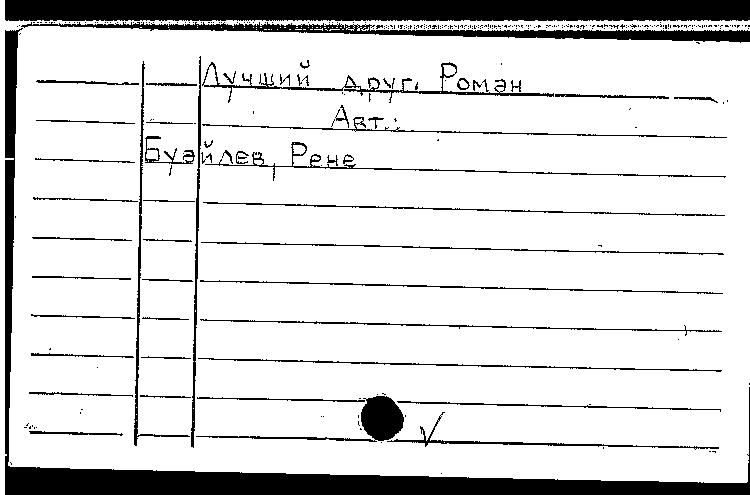 Лучший друг. Роман
Авт.:
Буайлев, Рене